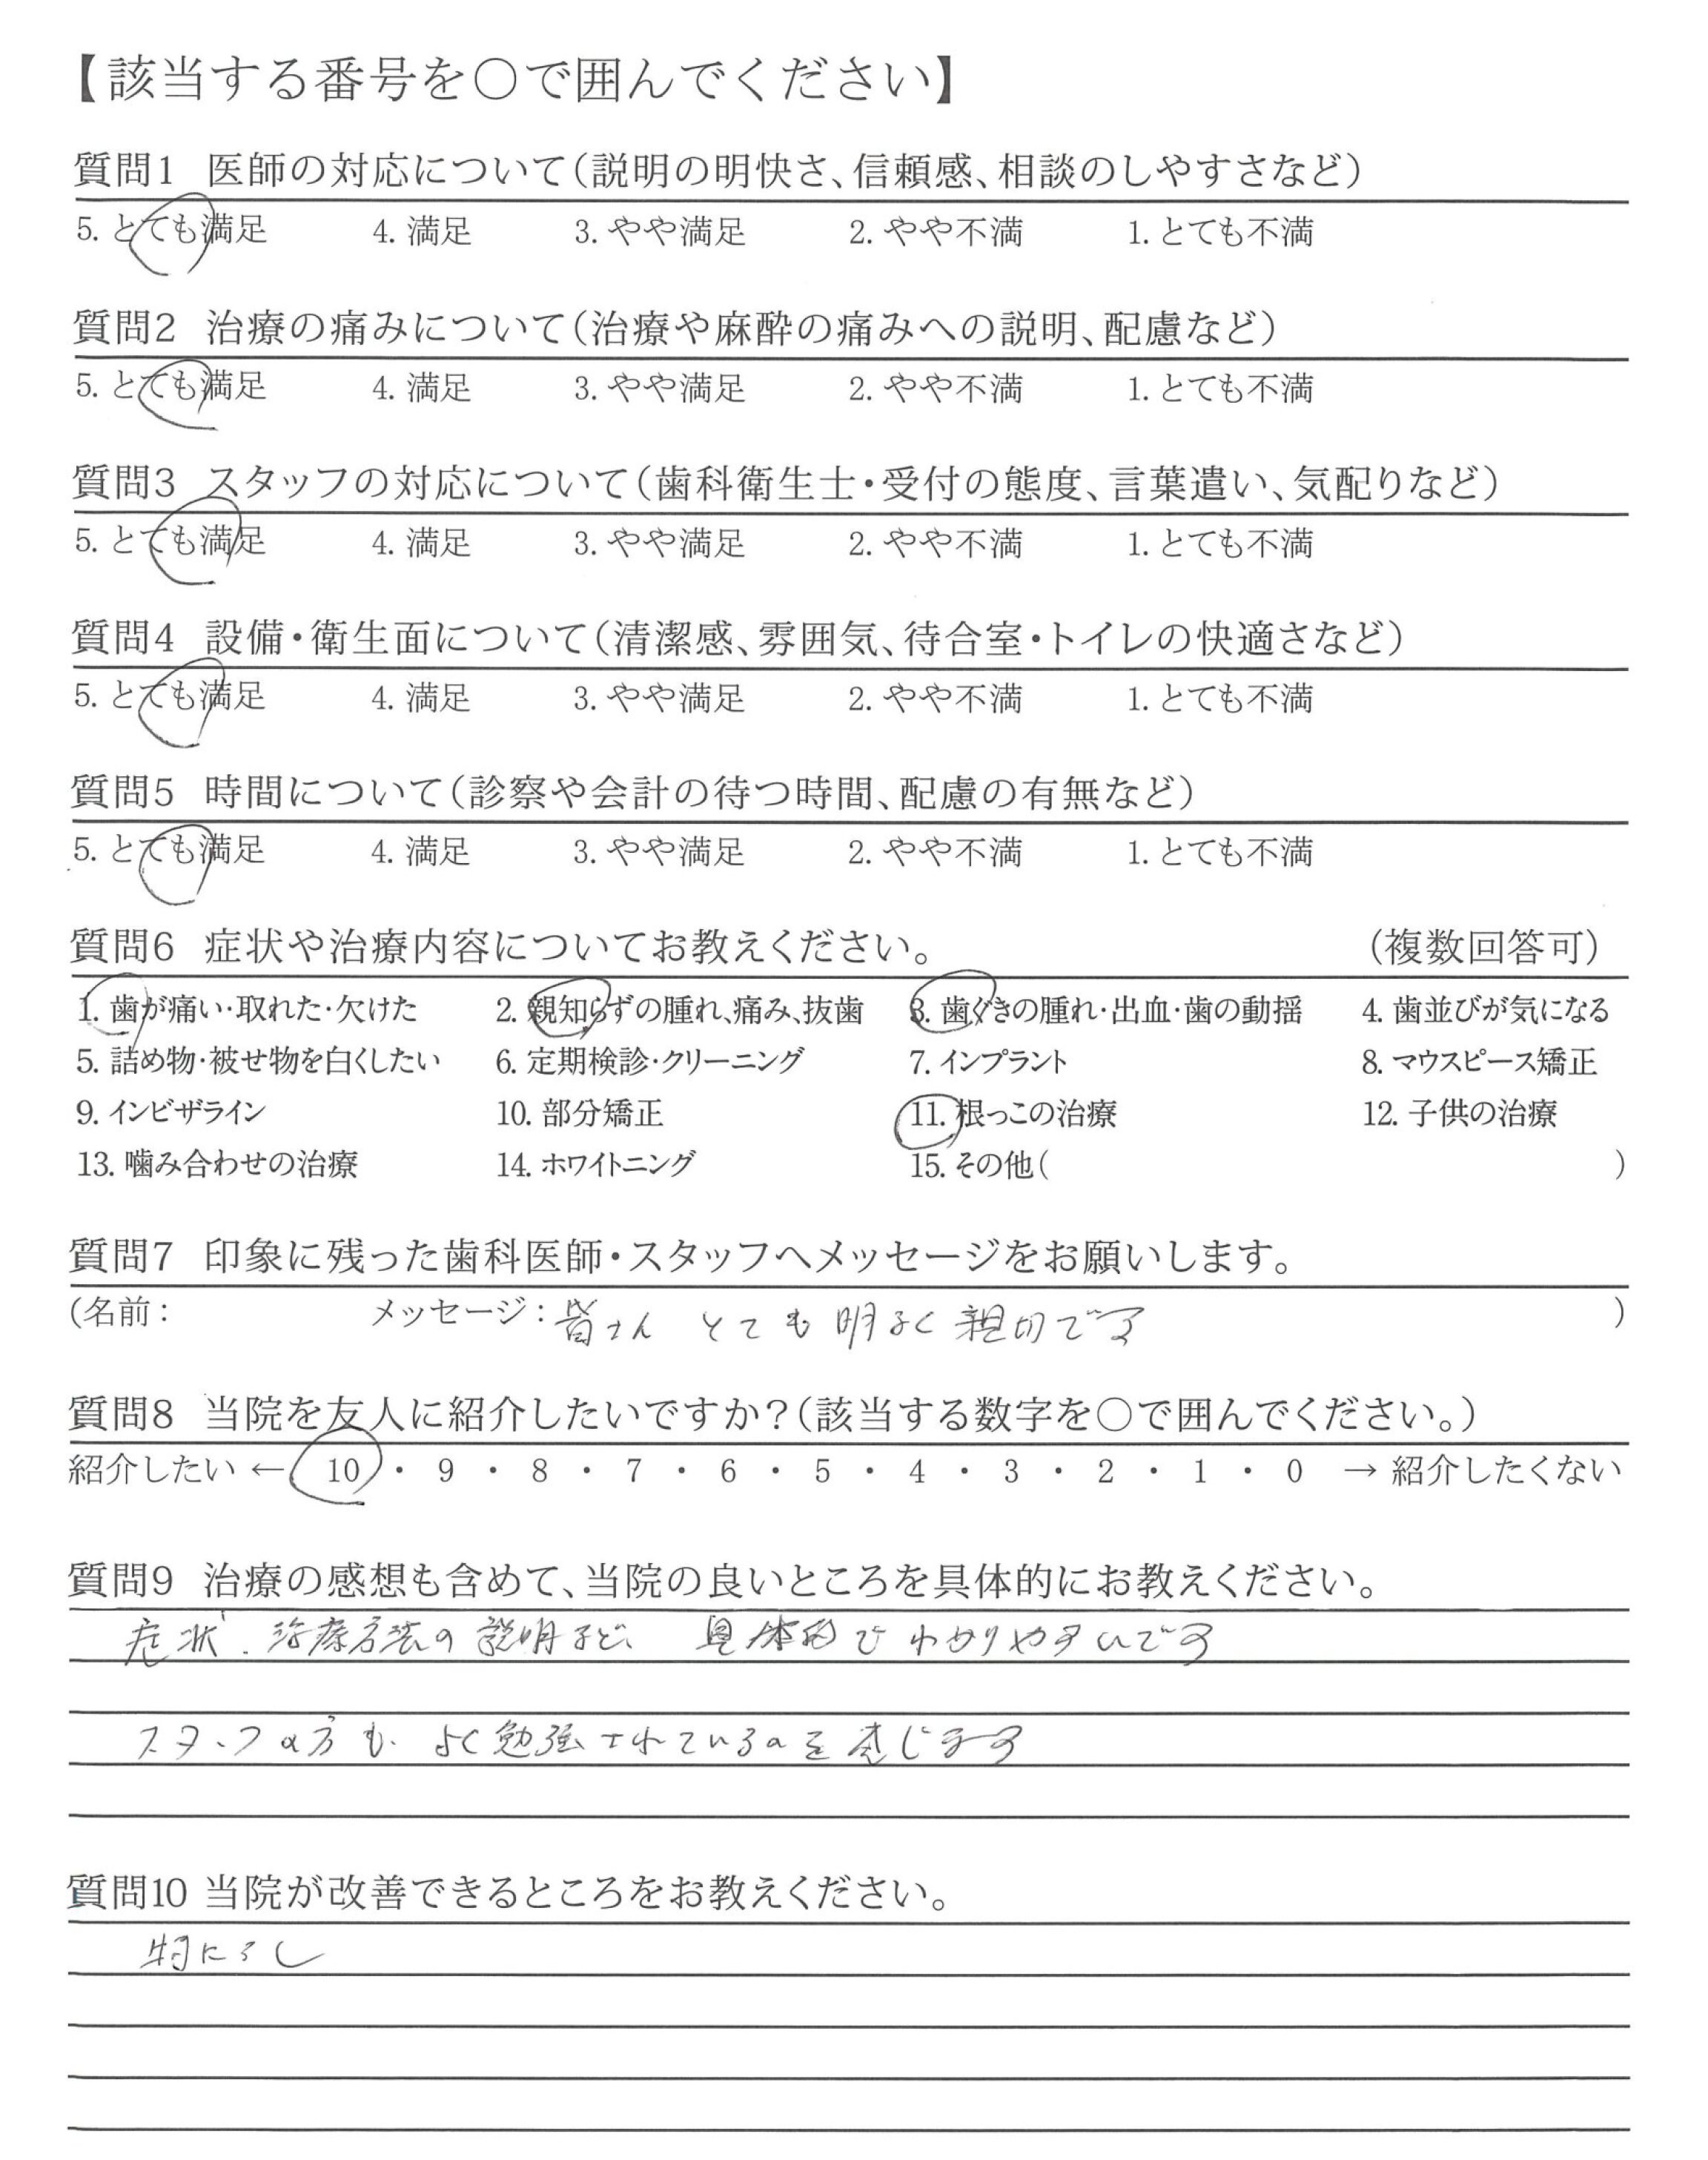 【該当する番号を○で囲んでください】
質問1 医師の対応について(説明の明快さ、信頼感、相談のしやすさなど)
5. とても満足 4. 満足 3. やや満足 2. やや不満 1. とても不満
質問2 治療の痛みについて(治療や麻酔の痛みへの説明、配慮など)
5. とても満足 4. 満足 3. やや満足 2. やや不満 1. とても不満
質問3 スタッフの対応について(歯科衛生士・受付の態度、言葉遣い、気配りなど)
5. とても満足 4. 満足 3. やや満足 2. やや不満 1. とても不満
質問4 設備・衛生面について(清潔感、雰囲気、待合室・トイレの快適さなど)
5. とても満足 4. 満足 3. やや満足 2. やや不満 1. とても不満
質問5 時間について(診察や会計の待つ時間、配慮の有無など)
5. とても満足 4. 満足 3. やや満足 2. やや不満 1. とても不満
質問6 症状や治療内容についてお教えください。 (複数回答可)
1. 歯が痛い・取れた・欠けた 2. 親知らずの腫れ、痛み、抜歯 3. 歯ぐきの腫れ・出血・歯の動揺 4. 歯並びが気になる
5. 詰め物・被せ物を白くしたい 6. 定期検診・クリーニング 7. インプラント 8. マウスピース矯正
9. インビザライン 10. 部分矯正 11. 根っこの治療 12. 子供の治療
13. 噛み合わせの治療 14. ホワイトニング 15. その他( )
質問7 印象に残った歯科医師・スタッフへメッセージをお願いします。
(名前: メッセージ: 皆さん とても明るく親切です )
質問8 当院を友人に紹介したいですか?(該当する数字を○で囲んでください。)
紹介したい ← 10 ・ 9 ・ 8 ・ 7 ・ 6 ・ 5 ・ 4 ・ 3 ・ 2 ・ 1 ・ 0 → 紹介したくない
質問9 治療の感想も含めて、当院の良いところを具体的にお教えください。
症状、治療方法の説明など、具体的でわかりやすいです
スタッフの方も、よく勉強されているのを感じます
質問10 当院が改善できるところをお教えください。
特になし